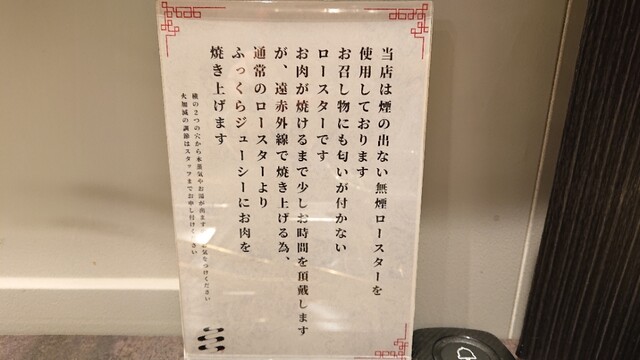 当店は煙の出ない無煙ロースターを
使用しております
お召し物にも匂いが付かない
ロースターです
お肉が焼けるまで少しお時間を頂戴します
が、遠赤外線で焼き上げる為、
通常のロースターより
ふっくらジューシーにお肉を
焼き上げます
横の２つの穴から水蒸気やお湯が出ます
気をつけください
火加減の調節はスタッフまでお申し付けください